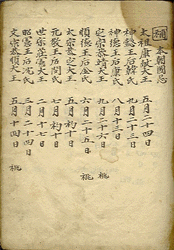 補 本朝國忌
太祖康獻大王 五月二十四日
神懿王后韓氏 九月二十三日
神德王后康氏 八月十三日
定宗恭靖大王 九月二十六日 祧
王后金氏 六月二十五日 祧
太宗恭定大王 五月初十日
元敬王后閔氏 七月初十日
世宗莊憲大王 二月十七日
昭憲王后沈氏 月二十四日
文宗恭順大王 五月十四日 祧